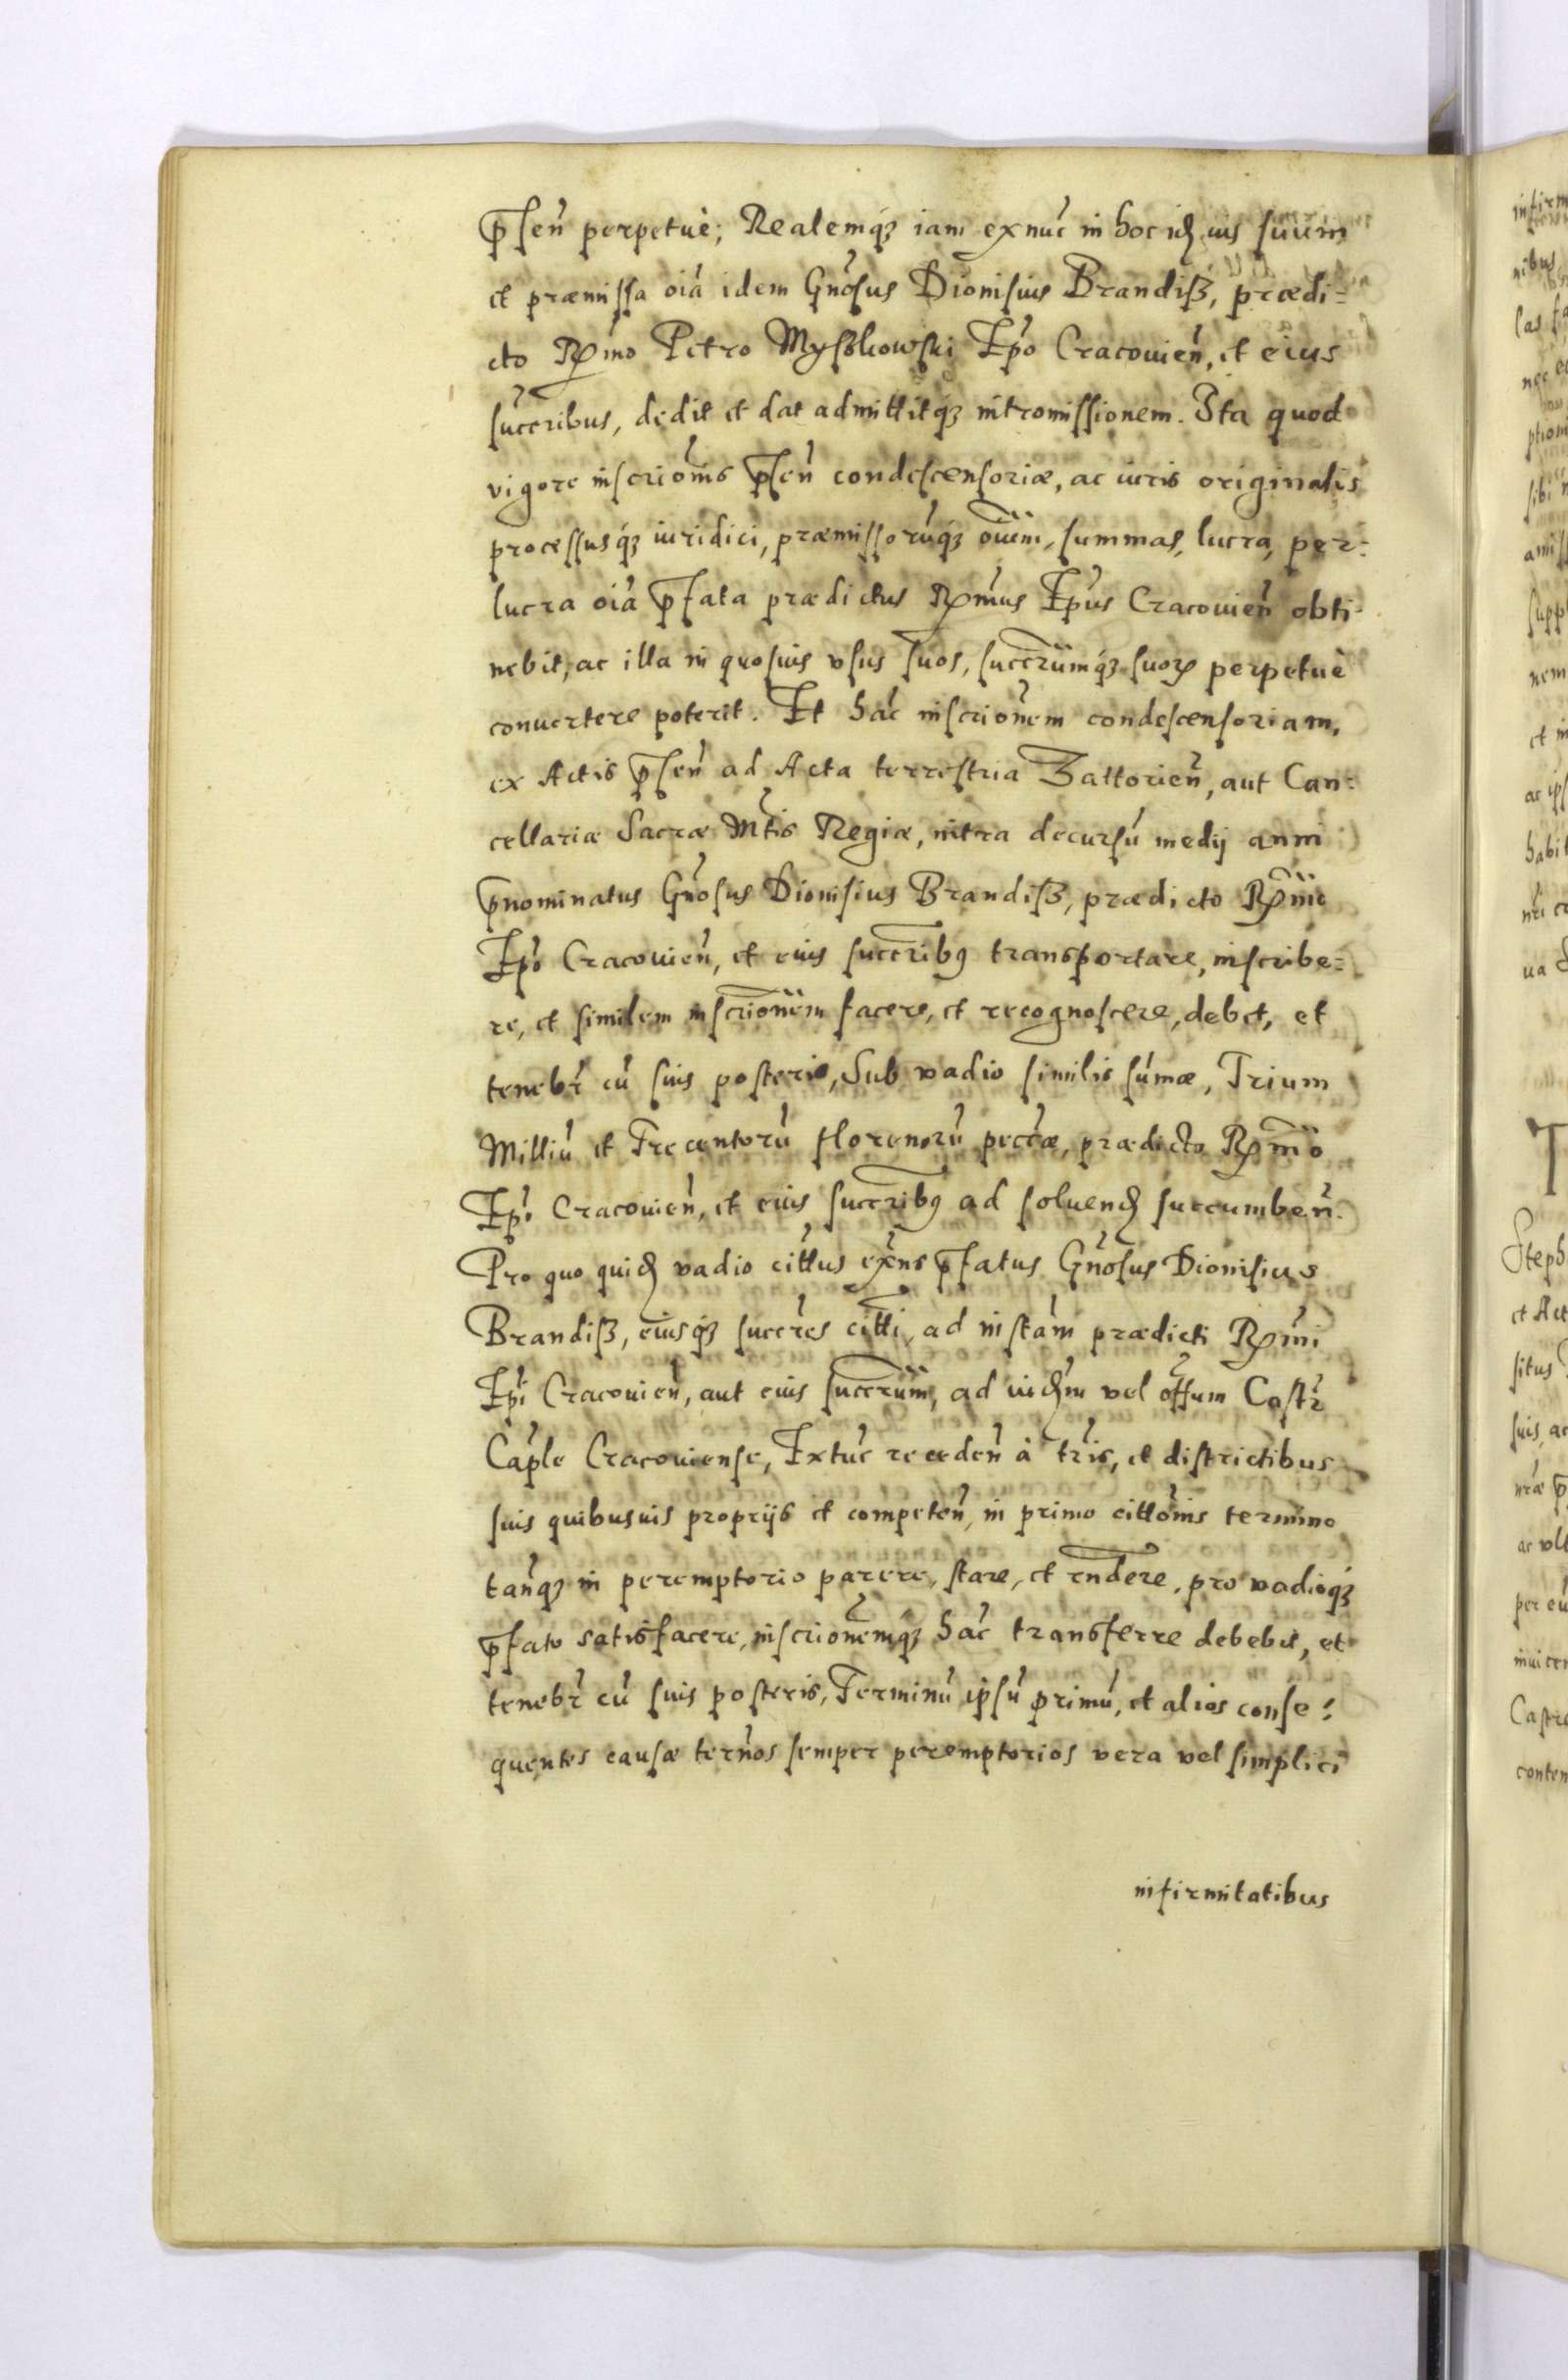 p̄sen̄ perpetuè; Realemq́ȝ iam exnuć in hoc id ius suum
et præmissa oiá idem Gnośus Dionisius Brandiß, prædi=
cto Rṃo Petro Myßkowski Eṕo Cracouień, et eius
suc̄cribus, dedit et dat admittitq́ȝ intromissionem. Ita quod
vigore inscriōnis p̄seń condescensoriæ, ac iuris originalis
processusq́ȝ iuridici, præmissorúq́ȝ oīum, summas, lucra, per=
lucra oiá p̄fata prædictus Rṃus Eṕus Cracouień obti-
nebit, ac illa in quosuis vsus suos, succr̄umq́ȝ suoꝝ perpetuè
conuertere poterit. Et hać inscriōnem condescensoriam,
ex Actis p̄seń ad Acta terrestria Zattorień, aut Can=
cellariæ Sacræ Mt́is Regiæ, intra decursú medij anni
p̄nominatus Gnośus Dionisius Brandiß, prædicto Rm̄o
Eṕo Cracouień, et eius succr̄ibꝰ transportare, inscribe=
re, et similem inscriōnem facere, et recognoscere, debet, et
tenebŕ cú suis posteris, Sub vadio similis súmæ, Trium
Milliú et Trecentorú florenorú pec̄c̄æ, prædicto Rm̄o
Eṕo Cracouień, et eius succr̄ibꝰ ad soluend succumbeń.
Pro quo quid vadio cit́tus ex̄ns p̄fatus Gnośus Dionisius
Brandiß, eiusq́ȝ succŕes cit́ti, ad instám prædicti Rm̄i
Eṕi Cracouień, aut eius succr̄um, ad iud́m vel off́um Castŕ
Caṕle Cracouiense, Extuć recedeń à tŕis, et districtibus
suis quibusuis proprijs et competeń, in primo cittōnis termino
tanq́ȝ in peremptorio parere, stare, et rn̄dere, pro vadioq́ȝ
p̄fato satisfacere, inscriōnemq́ȝ hać transferre debebit, et
tenebŕ cú suis posteris, Terminú ipsú primú, et alios conse=
quentes causæ terńos semper peremptorios vera vel simplici
infirmitatibus